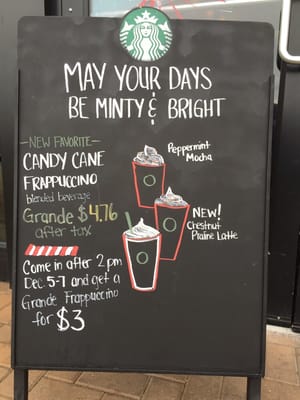 MAY YOUR DAYS
BE MINTY & BRIGHT
-NEW FAVORITE-
CANDY CANE
FRAPPUCCINO
blended beverage
Grande $4.76
after tax
Come in after 2 pm
Dec. 5-7 and get a
Grande Frappuccino
for $3
Peppermint
Mocha
NEW!
Chestnut
Praline Latte